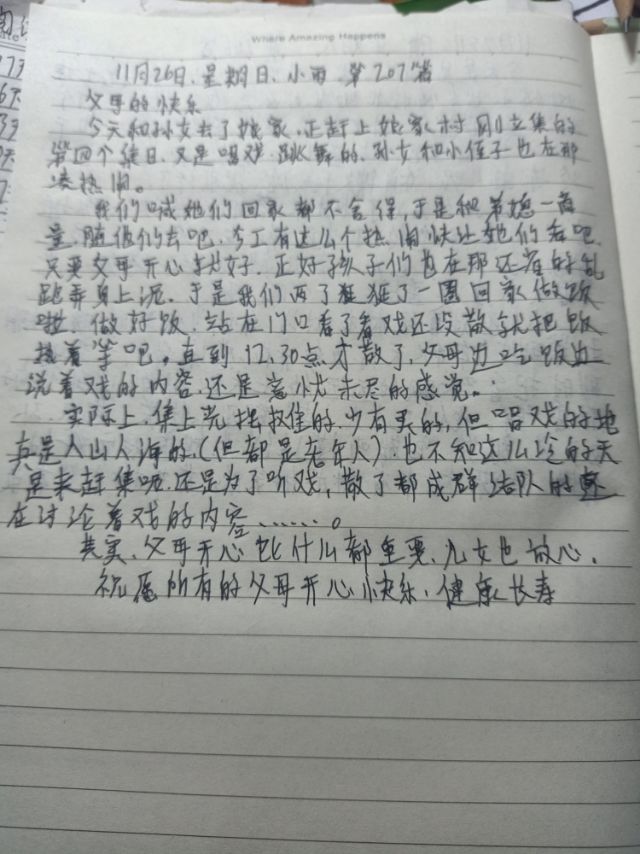 Where Amazing Happens
11月26日.星期日.小雨 第207篇
父母的快乐
今天和孙女去了娘家.正赶上娘家村刚立集的
第四个集日.又是唱戏.跳舞的.孙女和小侄子也在那
凑热闹。
我们喊她们回家都不舍得,于是和弟媳一商
量.随他们去吧,有这么个热闹快让她们看吧.
只要父母开心就好.正好孩子们也在那还省的乱
跑弄身上泥.于是我们两了逛逛了一圈回家做饭
啦 做好饭.站在门口看了看戏还没散就把饭
热着等吧。直到12.30点才散了.父母边吃饭边
说着戏的内容.还是意犹未尽的感觉.
实际上.集上光摆摊的.少有买的,但唱戏的地
真是人山人海的.(但都是老年人).也不知这么冷的天
是来赶集呢.还是为了听戏,散了都成群结队的还
在讨论着戏的内容……。
其实.父母开心比什么都重要.儿女也放心.
祝愿所有的父母开心快乐.健康长寿